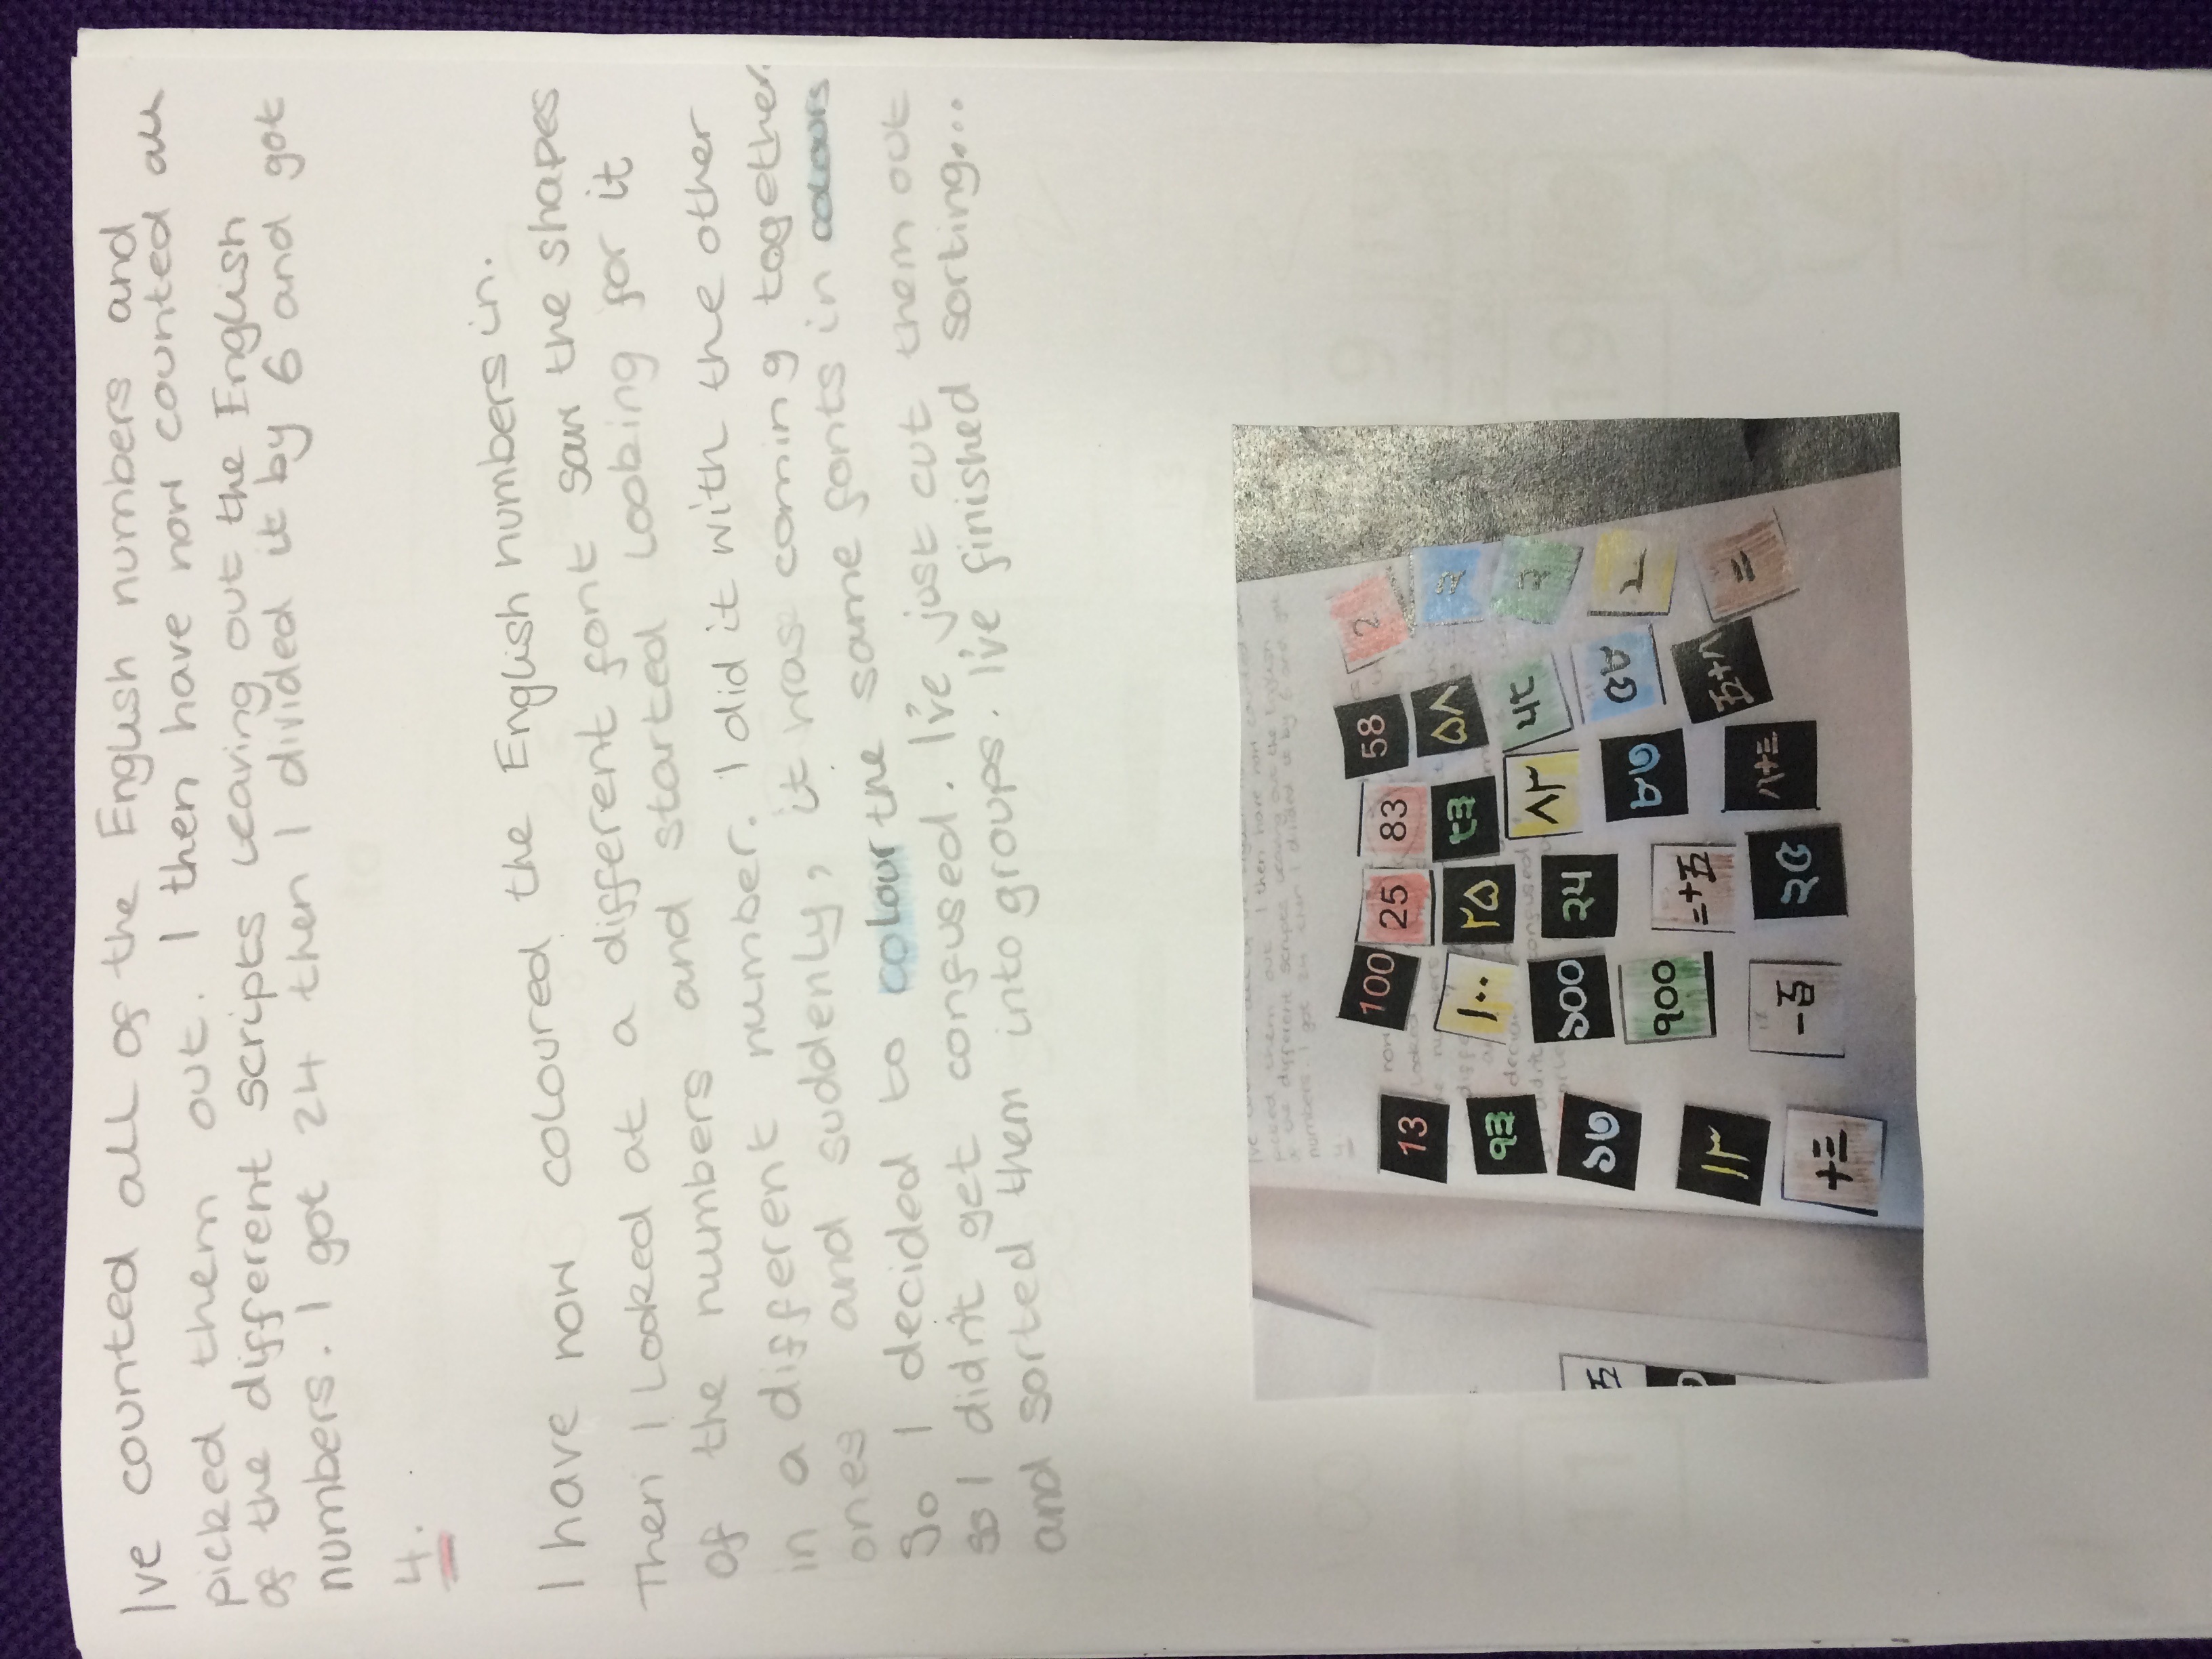 Ive counted all of the English numbers and
picked them out. I then have now counted all
of the different scripts leaving out the English
numbers. I got 24 then I divided it by 6 and got
4.
I have now coloured the English numbers in.
Then I looked at a different font saw the shapes
of the numbers and started looking for it
in a different number. I did it with the other
ones and suddenly, it was coming together.
So I decided to colour the same fonts in colours
so I didn't get confused. I've just cut them out
and sorted them into groups. I've finished sorting...
13 100 25 83 58 2
૧૩ ١٠٠ ٢٥ ૮૩ ٥٨ ๒
๑๓ ๑๐๐ ૨૫ ٨٣ ૫૮ ૨
١٣ ૧૦૦ 二十五 ๘๓ ๕๘ ٢
十三 一百 ๒๕ 八十三 五十八 二
五